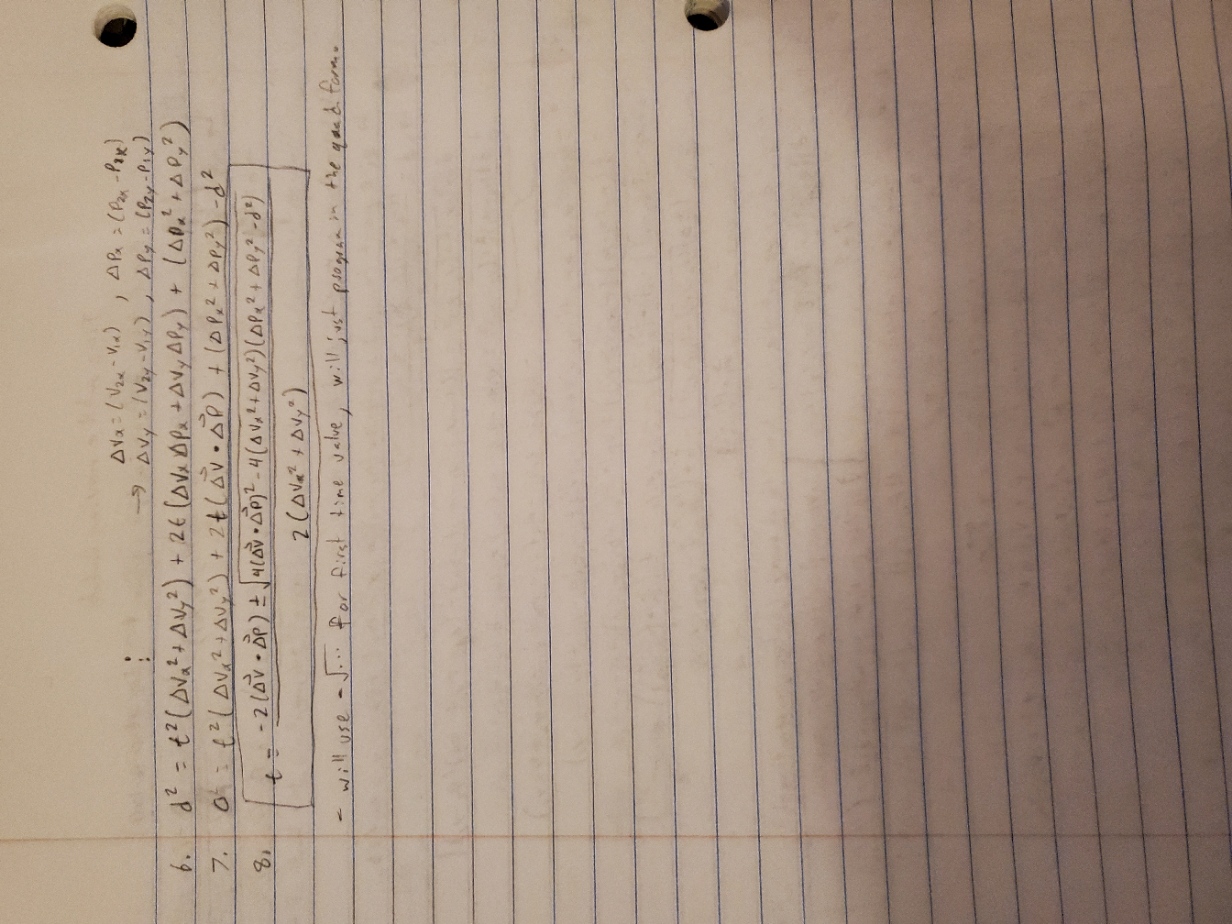 ΔVx = (V2x - V1x) , ΔPx = (P2x - P1x)
⋮ → ΔVy = (V2y - V1y) , ΔPy = (P2y - P1y)
6. d² = t²(ΔVx² + ΔVy²) + 2t(ΔVxΔPx + ΔVyΔPy) + (ΔPx² + ΔPy²)
7. 0 = t²(ΔVx² + ΔVy²) + 2t(ΔV⃗ • ΔP⃗) + (ΔPx² + ΔPy²) - d²
8. t = (-2(ΔV⃗ • ΔP⃗) ± √(4(ΔV⃗ • ΔP⃗)² - 4(ΔVx² + ΔVy²)(ΔPx² + ΔPy² - d²))) / (2(ΔVx² + ΔVy²))
- will use -√... for first time value, will just program in the quad. form.